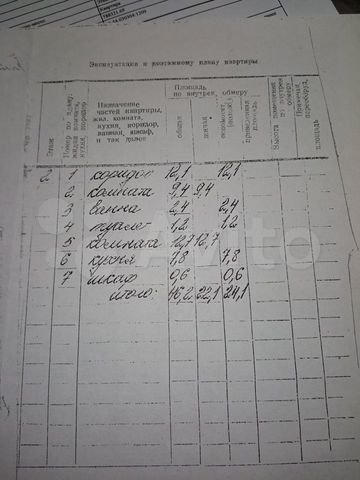 Экспликация к поэтажному плану квартиры
Этаж
Номер по плану: жилая комната, кухни, коридор
Назначение частей квартиры, жил. комната, кухня, коридор, ванная, шкаф, и так далее
Площадь по внутрен. обмеру
общая
жилая
площадь
Высота помещения по внутрен. обмеру
площадь
2 1 коридор 12,1 12,1
2 комната 9,4 9,4
3 ванна 2,4 2,4
4 туалет 1,2 1,2
5 комната 12,7 12,7
6 кухня 7,8 7,8
7 шкаф 0,6 0,6
итого: 46,2 22,1 24,1
Avito